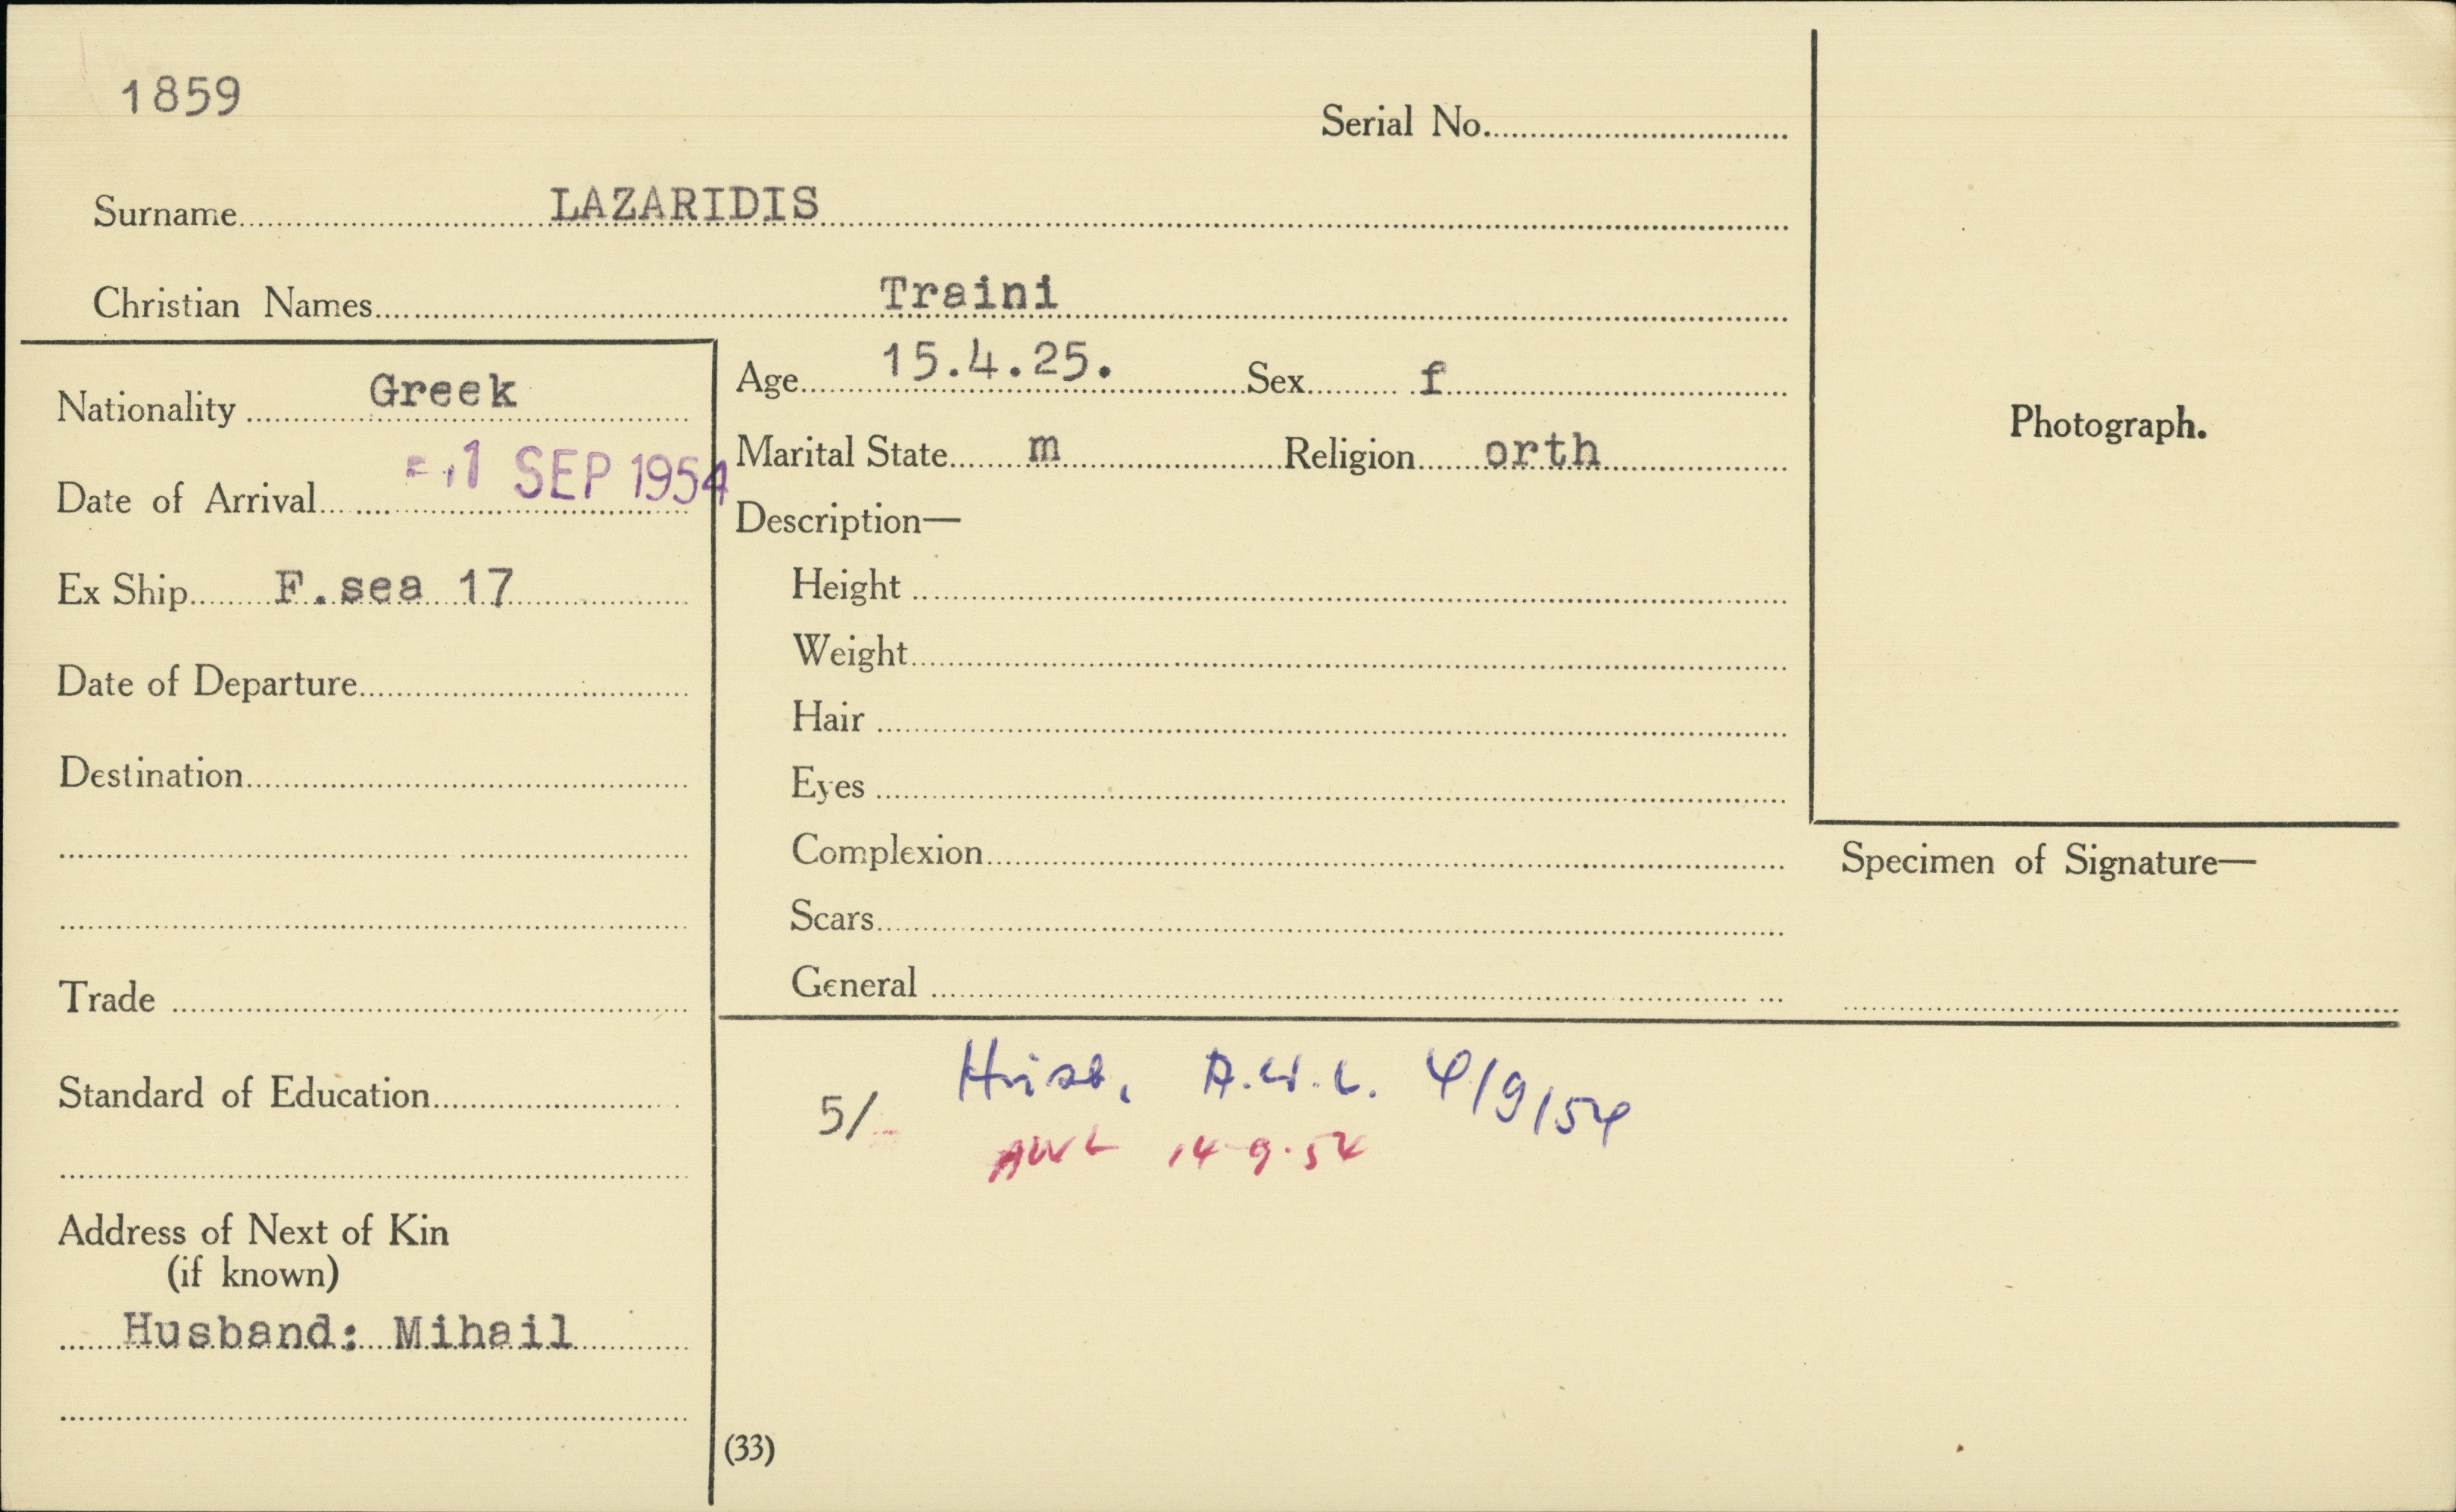 1859
Serial No.
Surname LAZARIDIS
Christian Names Traini
Nationality Greek
Date of Arrival - 1 SEP 1954
Ex Ship F.sea 17
Date of Departure
Destination
Trade
Standard of Education
Address of Next of Kin
(if known)
Husband: Mihail
Age 15.4.25. Sex f
Marital State m Religion orth
Description—
Height
Weight
Hair
Eyes
Complexion
Scars
General
Photograph.
Specimen of Signature—
5/
Husb, A.W.L. 4/9/54
AWL 14-9-54
(33)